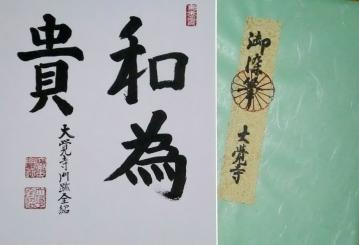 和為
貴
大覚寺門跡全紹
御染筆
大覚寺